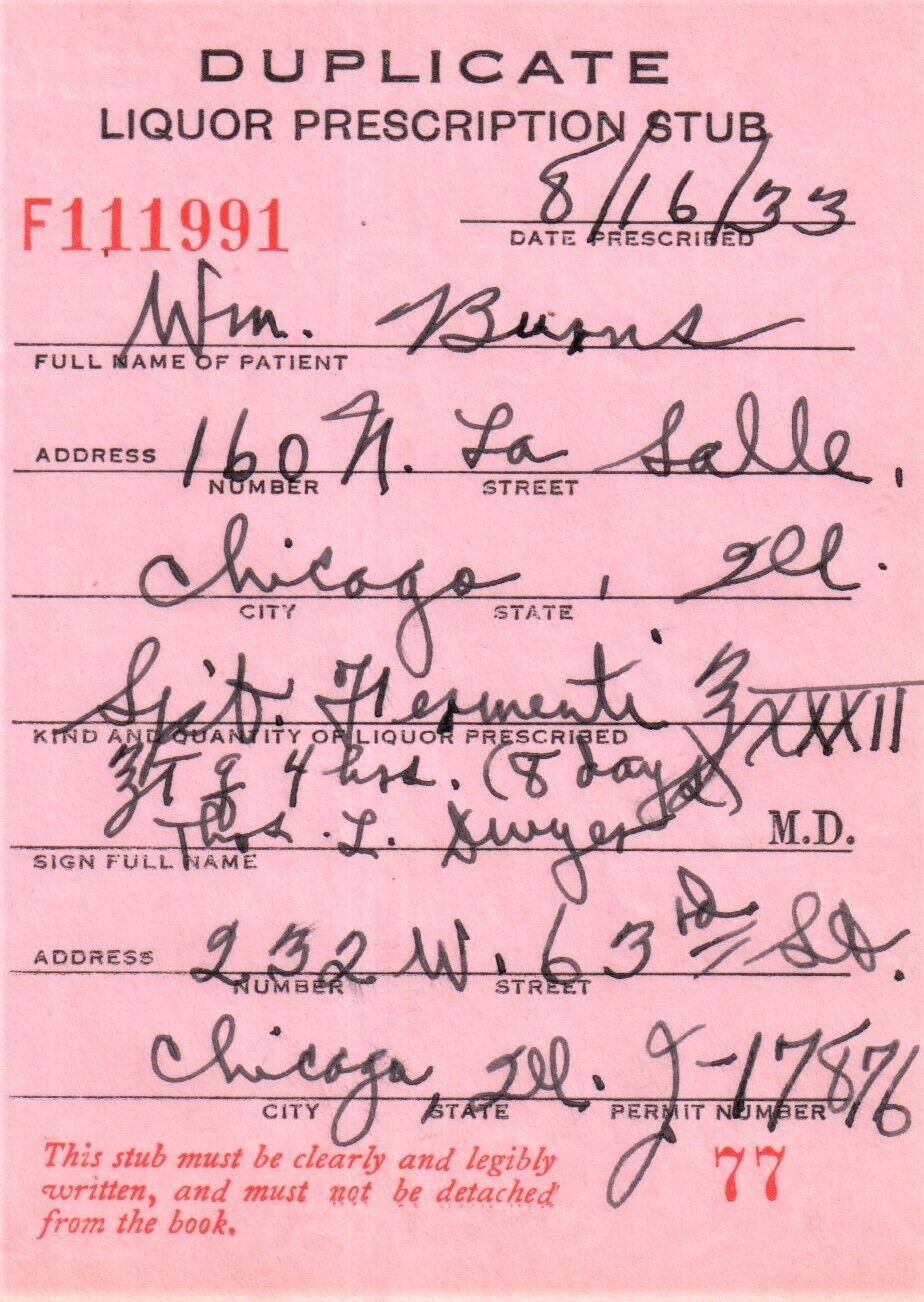 DUPLICATE
LIQUOR PRESCRIPTION STUB
8/16/33
F111991
DATE PRESCRIBED
Wm. Burns
FULL NAME OF PATIENT
ADDRESS 160 N. La Salle,
NUMBER STREET
Chicago, Ill.
CITY STATE
Spt. Fermenti ℥ XXXII
KIND AND QUANTITY OF LIQUOR PRESCRIBED
℥ q 4 hrs. (8 days)
Thos. L. Dwyer M.D.
SIGN FULL NAME
ADDRESS 232 W. 63rd St.
NUMBER STREET
Chicago, Ill. J-17876
CITY STATE PERMIT NUMBER
This stub must be clearly and legibly
written, and must not be detached
from the book.
77